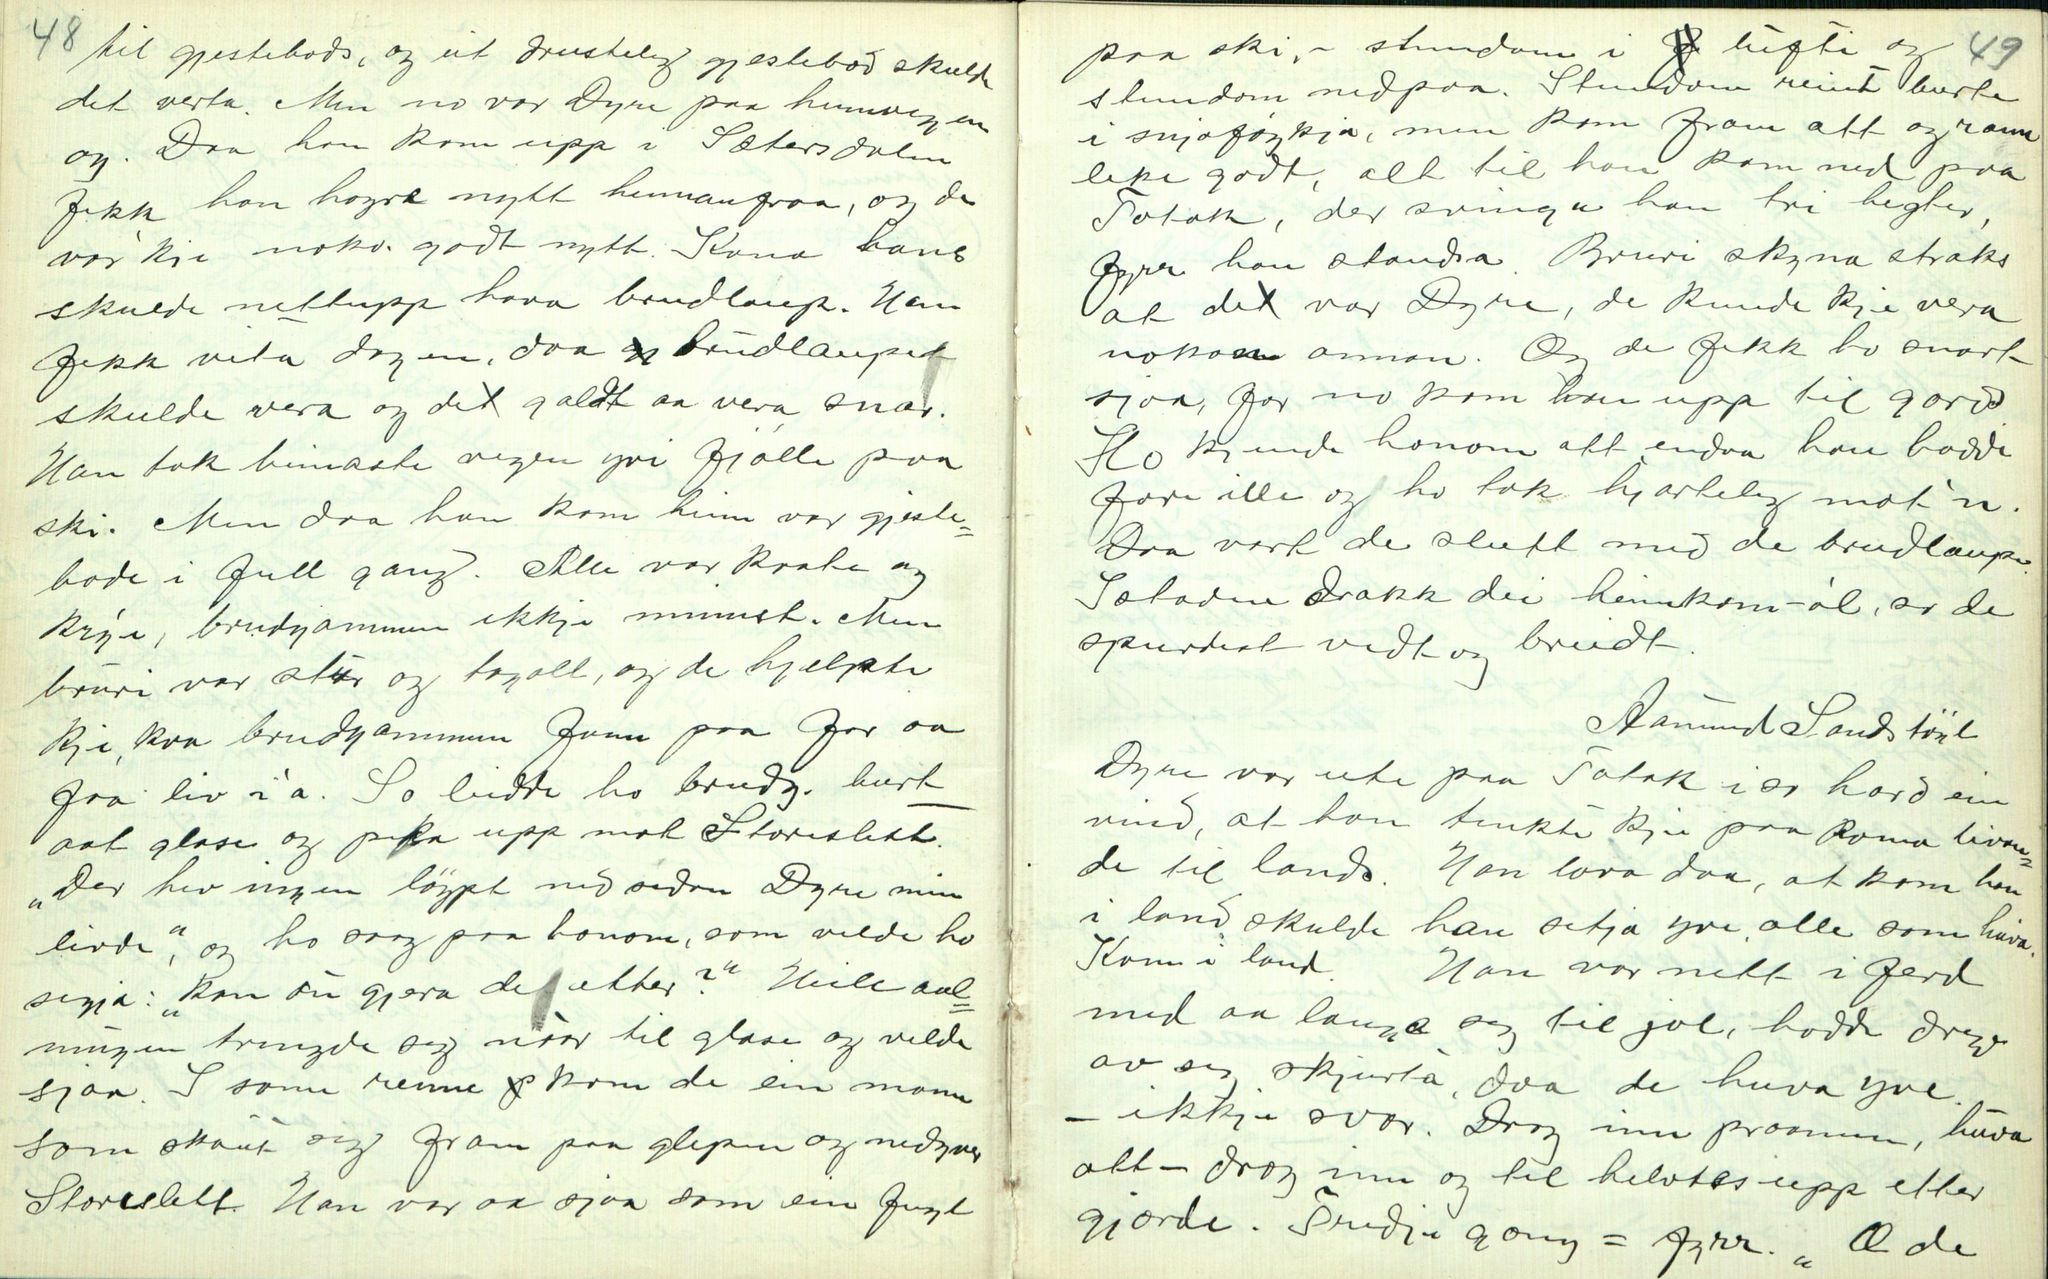 48
til gjestebods, og eit drusteleg gjestebod skulde
det verta. Men no var Dyre paa heimvegen
og. Daa han kom upp i Sætersdalen
fekk han høyra nytt heimanfraa, og de
var kje noko godt nytt. Kona hans
skulde nettupp hava brudlaup. Han
fekk vita dagen, daa brudlaupet
skulde vera og det galdt aa vera snar.
Han tok beinaste vegen yvi fjølle paa
ski. Men daa han kom heim var gjeste=
bode i full gang. Alle var kaate og
krye, brudgommen ikkje minst. Men
bruri var stur og togall, og de hjelpte
kje, kva brudgommen fann paa for aa
faa liv i'a. So leidde ho brudg. burt
aat glase og peka upp mot Storeslett.
"Der hev ingen løypt ned sidan Dyre min
livde", og ho saag paa honom, som vilde ho
segja: "kan du gjera de etter?" Heile aal=
mugen trengde seg nær til glase og vilde
sjaa. I same renne kom de ein mann
som skaut seg fram paa glepen og nedyver
Storeslett. Han var aa sjaa som ein fugl
49
paa ski, - stundom i lufti og
stundom nedpaa. Stundom reint burte
i snjoføykja, men kom fram att og rann
like godt, alt til han kom ned paa
Totak, der svinga han tri begter,
fyrr han standsa. Bruri skyna straks
at det var Dyre, de kunde kje vera
nokon annan. Og de fekk ho snart
sjaa, for no kom han upp til gards
Ho kjende honom att endaa han hadde
fare ille og ho tok hjarteleg mot'n.
Daa vart de slutt med de brudlaupe.
Istaden drakk dei heimkom-øl, so de
spurdest vidt og breidt.
Aamund Sandstöyl
Dyre var ute paa Totak i so hard ein
vind, at han tenkte kje paa koma livan=
de til lands. Han lova daa, at kom han
i land, skulde han setja yve alle som huva.
Kom i land. Han var nett i ferd
med aa lauga seg til jol, hadde drege
av seg skjurta, daa de huva yve.
- ikkje svar. Drog inn praamen, huva
att - drog inn og til helvtes upp etter
gjorde. Tredje gong = fyrr. "Æ de